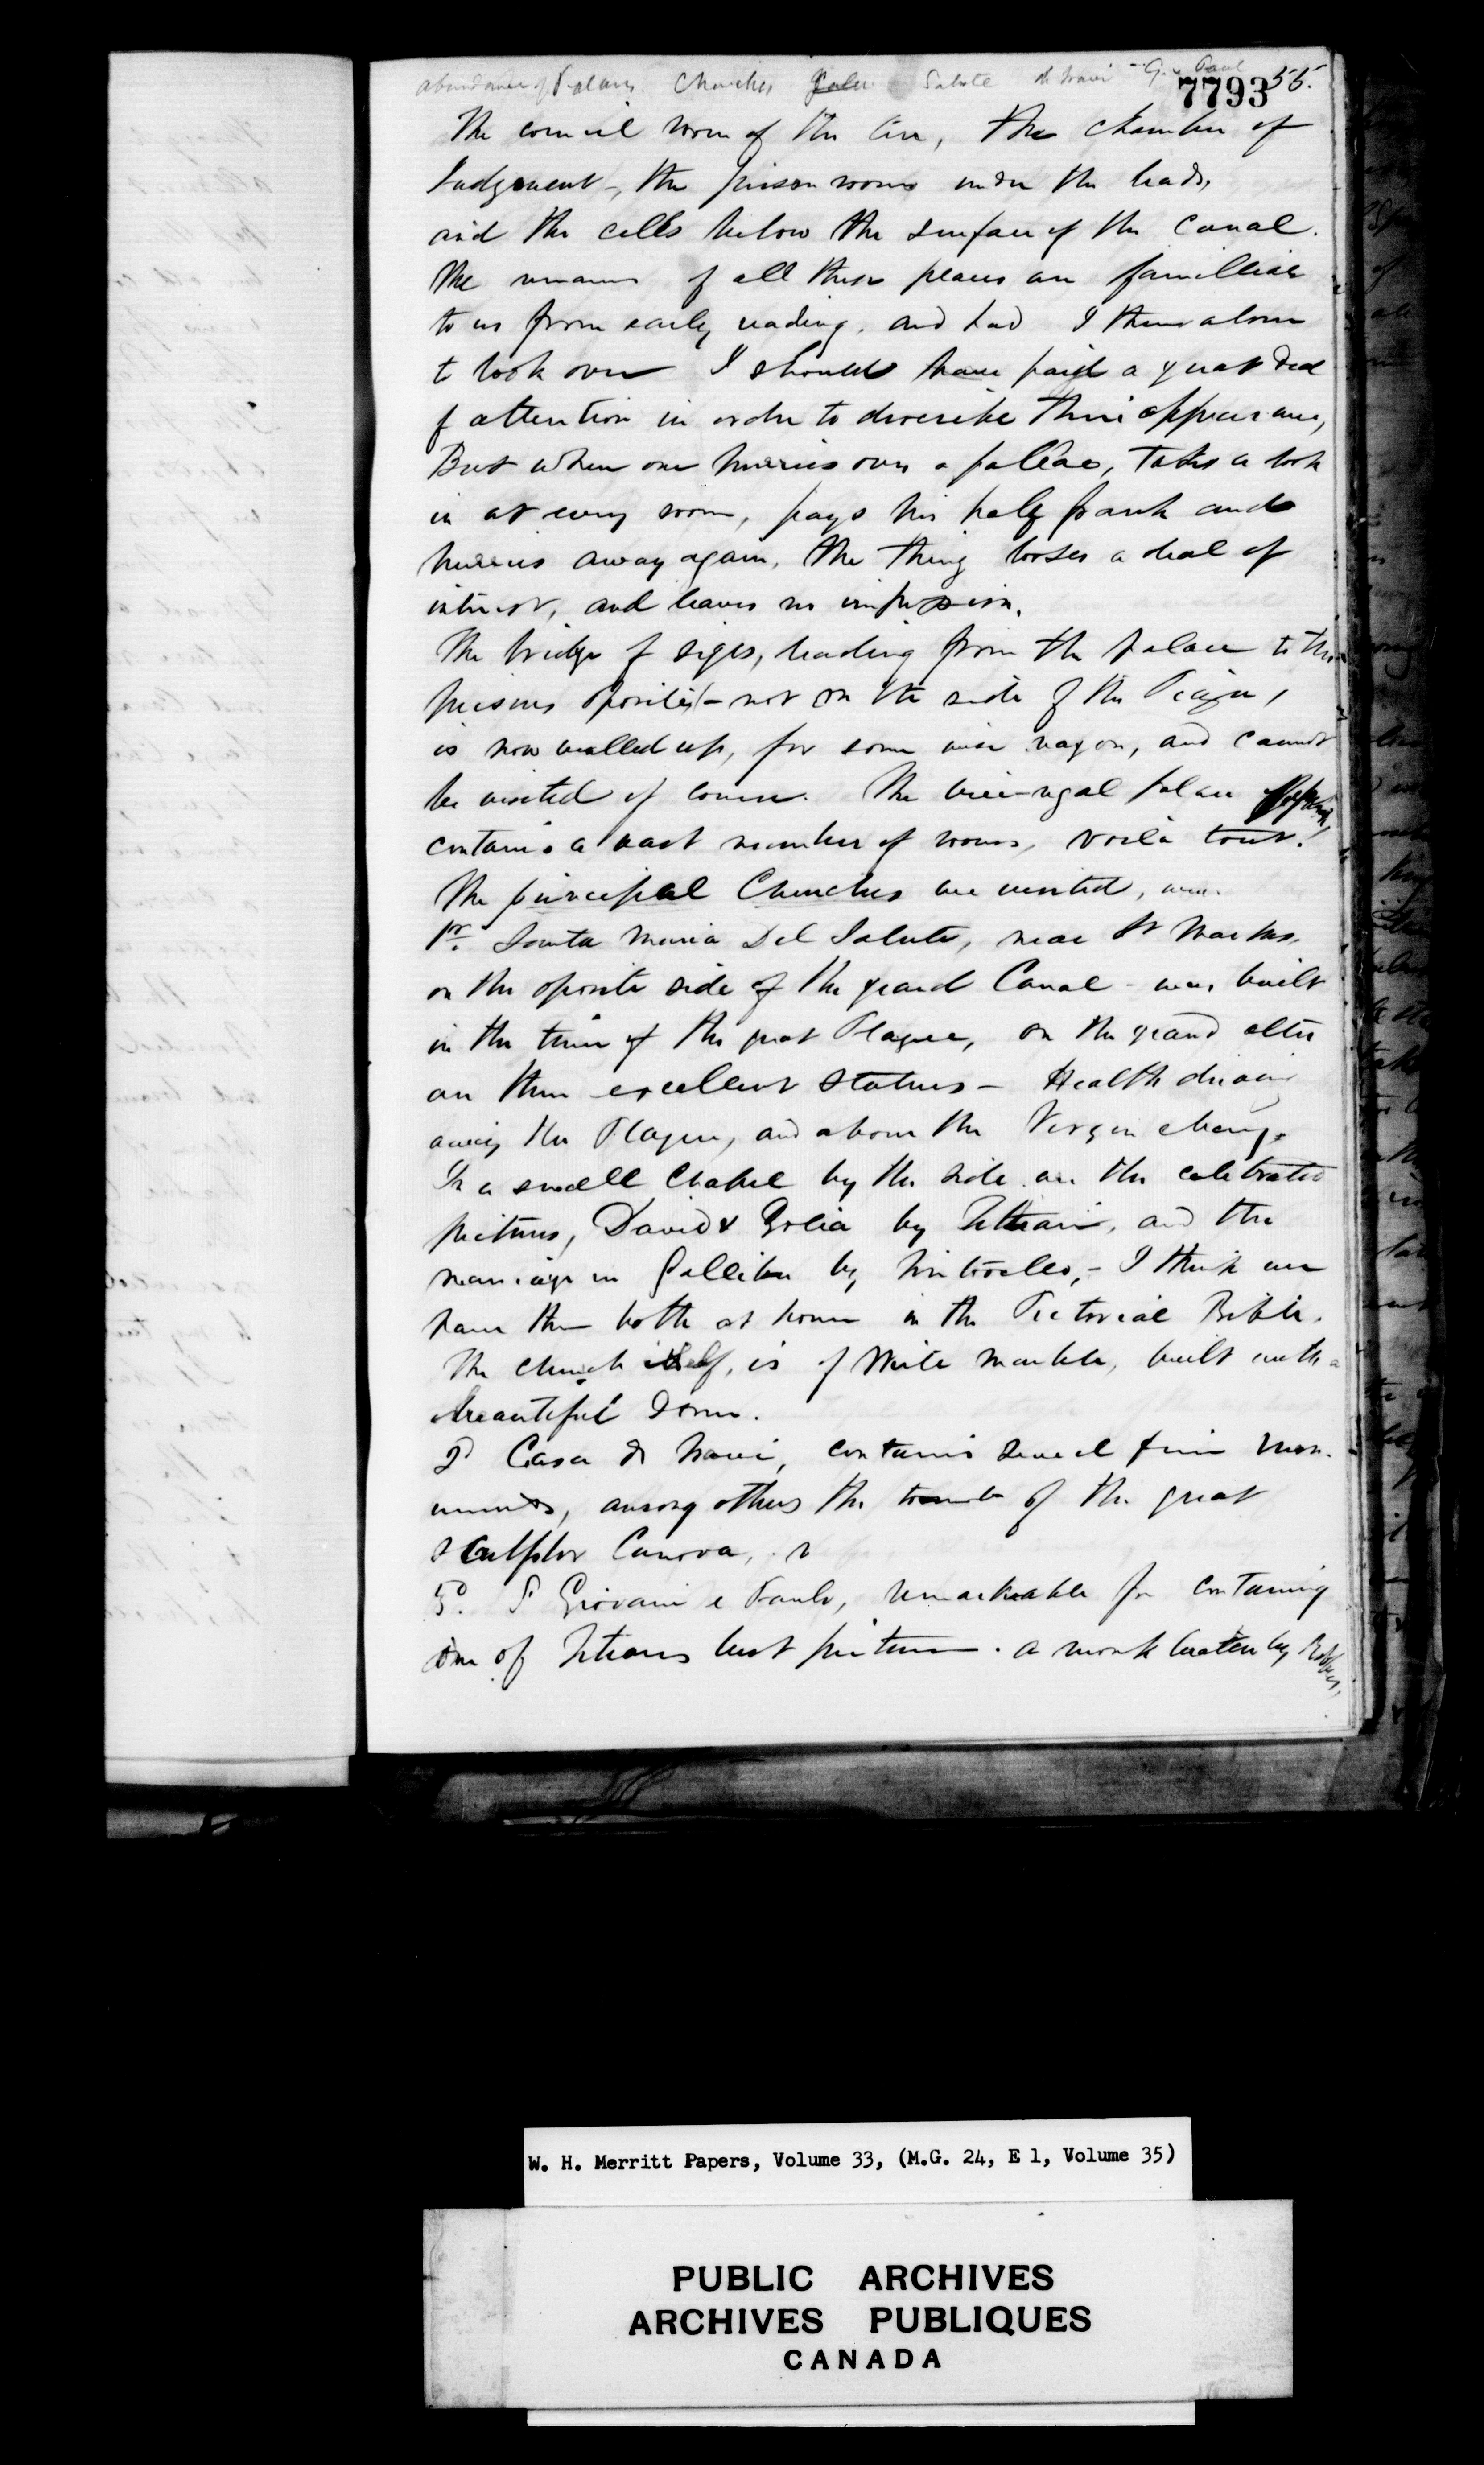 abundance of Palaces. Churches Salute G. Paul
7793 55.
The council room of the ten, the chamber of
Judgement -, the prison rooms under the leads,
and the cells below the surface of the Canal.
The names of all these places are familliar
to us from early reading. and had I them alone
to look over I should have paid a great deal
of attention in order to describe their appearance,
But when one hurries over a pallace, takes a look
in at every room, pays his half frank and
hurries away again, the thing looses a deal of
interest, and leaves no impression.
The bridge of sighs, leading from the palace to the
prisons oposite - not on the side of the Piazza,
is now walled up, for some wise reason, and cannot
be visited of course. The vice-regal palace
contains a vast number of rooms, voila tout.
The principal Churches we visited, were
1o. Santa Maria Del Salute, near St Marks,
on the oposite side of the grand Canal - was built
in the time of the great Plague, on the grand alter
are three excellent statues - Health driving
away the Plague, and above the Virgin
In a small Chapel by the side are the celebrated
pictures, David & Golia by Titian, and the
marriage in Gallilee by Tintorello, - I think we
have them both at home in the Pictorial Bible.
The church itself, is of White Marble, built with a
beautiful dome.
2o Casa di Frari, contains several fine mon-
uments, among others the tomb of the great
sculptor Canova,
3o. S Giovani e Paulo, remarkable for containing
one of Titians best pictures. a monk beaten by Robbers,
W. H. Merritt Papers, Volume 33, (M.G. 24, E 1, Volume 35)
PUBLIC ARCHIVES
ARCHIVES PUBLIQUES
CANADA